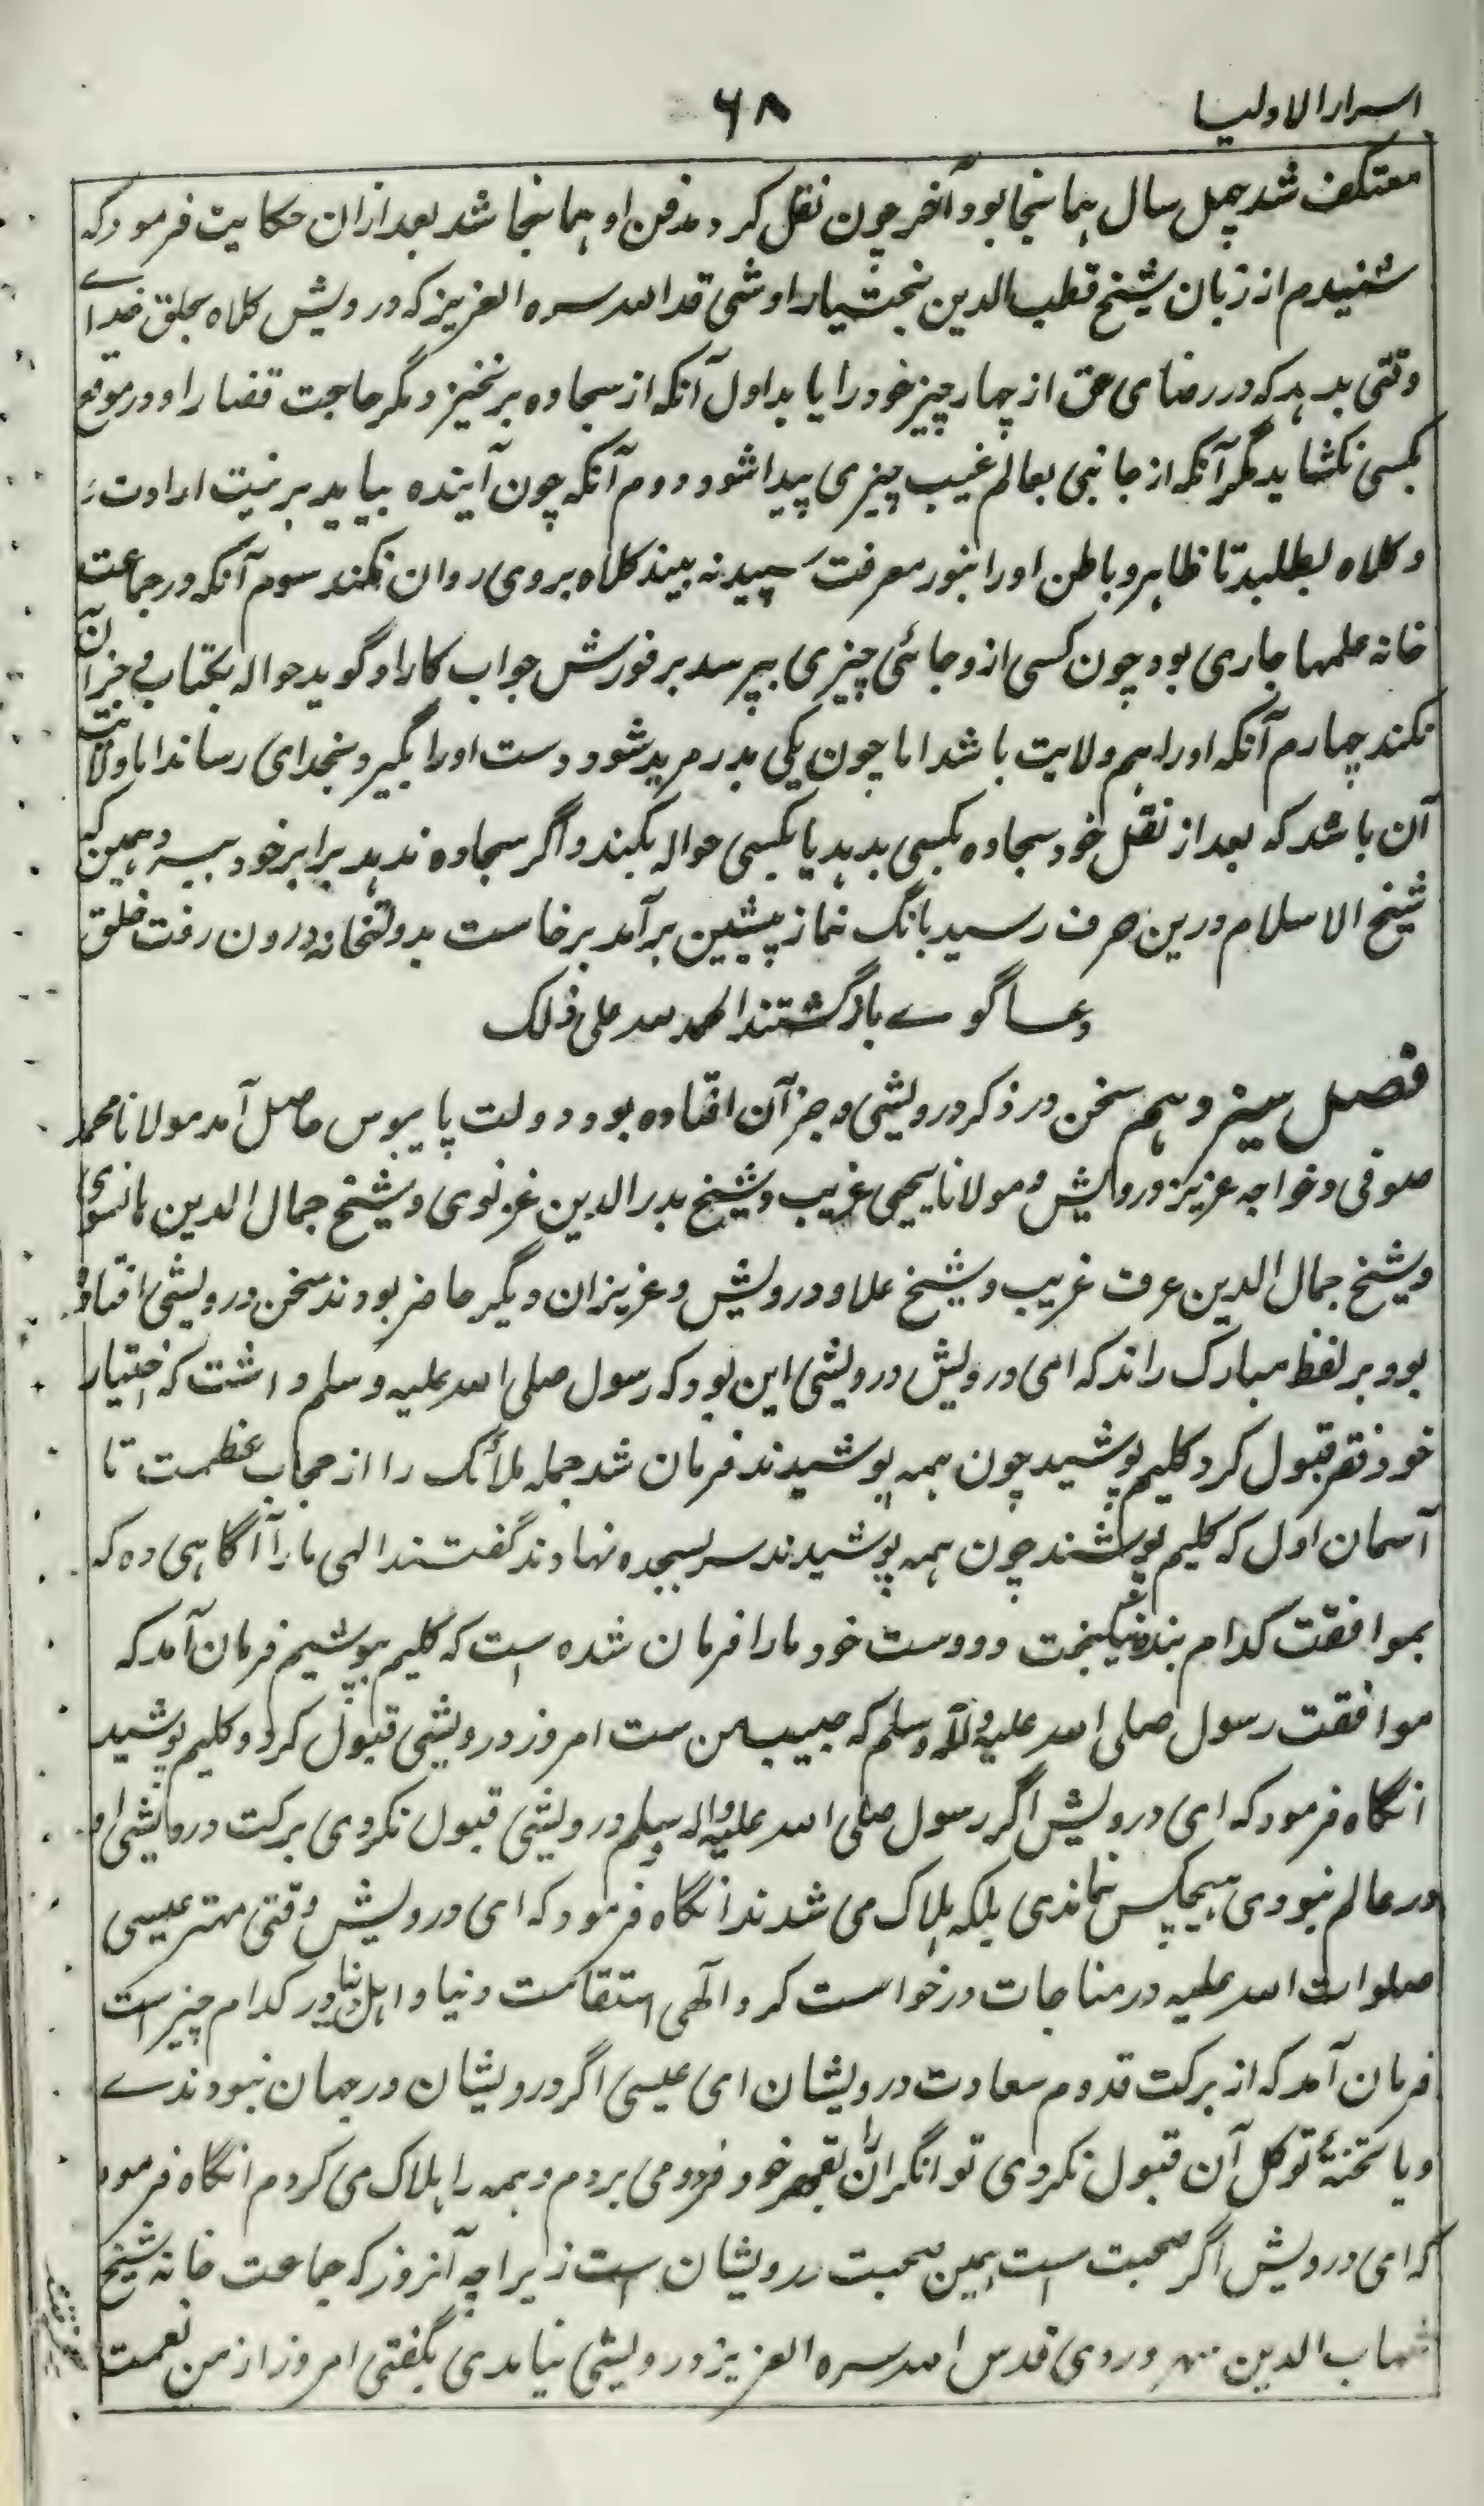 اسرار الاولیا
۶۸
معتکف شد چهل سال همانجا بود آخر چون نقل کرد مدفن او همانجا شد بعد ازان حکایت فرمود که
شنیدم از زبان شیخ قطب الدین بختیار اوشی قد الله سره العزیز که درویش کلاه بخلق خدای
وقتی بدهد که در رضای حق از چهار چیز خود را یابد اول آنکه از سجاده برنخیزد مگر حاجت قضا را و در موقع
کسی نکشاید مگر آنکه از جانبی بعالم غیب چیزی پیدا شود دوم آنکه چون آینده بیاید بر نیت ارادت
و کلاه بطلبد تا ظاهر و باطن او را بنور معرفت سپید نه بیند کلاه بروی روان نکند سوم آنکه در جماعت
خانه علمها جاری بود چون کسی ازو جائی چیزی بپرسد بر فورش جواب کار او گوید حواله بکتاب جز آن
نکند چهارم آنکه او را هم ولایت باشد اما چون یکی بدر مرید شود دست او را بگیرد بخدای رساند اما ولایت
آن باشد که بعد از نقل خود سجاده بکسی بدهد یا بکسی حواله بکند و اگر سجاده ندهد برابر خود ببرد همین که
شیخ الاسلام درین حرف رسید بانگ نماز پیشین برآمد برخاست بدولتخانه درون رفت خلق
دعا گوے بازگشتند الحمد لله علی ذلک
فصل سیزدهم سخن در ذکر درویشی و جز آن افتاده بود دولت پایبوس حاصل آمد مولانا محمد
صوفی و خواجه عزیز درویش و مولانا یحیی غریب و شیخ بدر الدین غزنوی و شیخ جمال الدین هانسوی
و شیخ جمال الدین عرف غریب و شیخ علاو درویش و عزیزان دیگر حاضر بودند سخن درویشی افتاده
بود بر لفظ مبارک راند که ای درویش درویشی این بود که رسول صلی الله علیه و سلم داشت که اختیار
خود فقر قبول کرد کلیم پوشید چون همه پوشیدند فرمان شد جمله ملائک را از حجاب عظمت تا
آسمان اول که کلیم پوشند چون همه پوشیدند سر بسجده نهادند گفتند الهی ما را آگاهی ده که
بموافقت کدام بنده نیکبخت و دوست خود ما را فرمان شده است که کلیم بپوشیم فرمان آمد که
موافقت رسول صلی الله علیه و آله وسلم که حبیب من ست امروز درویشی قبول کرد و کلیم پوشید
انگاه فرمود که ای درویش اگر رسول صلی الله علیه و اله وسلم درویشی قبول نکردی برکت درویشی او
در عالم نبودی هیچکس نماندی بلکه هلاک می شدند انگاه فرمود که ای درویش وقتی مهتر عیسی
صلوات الله علیه در مناجات درخواست کرد الهی استقامت دنیا و اهل دنیا در کدام چیز است
فرمان آمد که از برکت قدوم سعادت درویشان ای عیسی اگر درویشان در جهان نبودندے
و یا توکل آن قبول نکردی توانگران را بقهر خود فرو می بردم و همه را هلاک می کردم انگاه فرمود
که ای درویش اگر صحبت است همین صحبت درویشان است زیراچه آنروز که جماعت خانه شیخ
شهاب الدین سهروردی قدس الله سره العزیز درویشی نیامدی بگفتی امروز از من نعمت